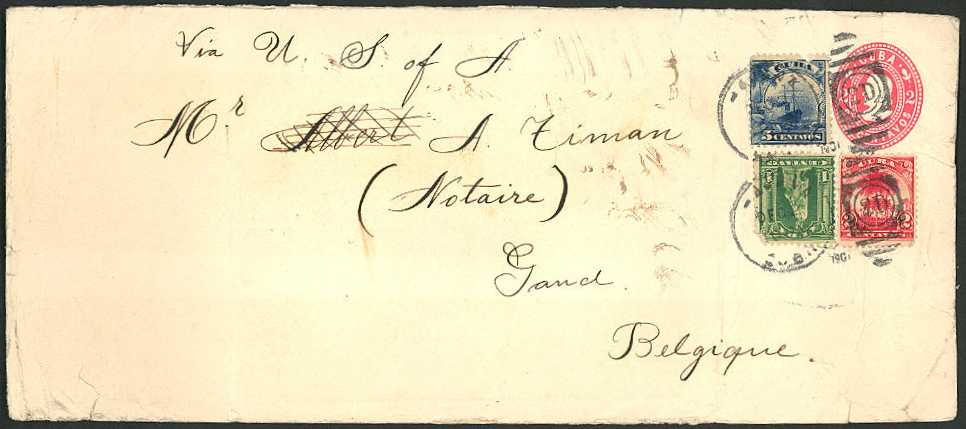 Via U. S of A.
Mr Albert A. Timan
(Notaire)
Gand.
Belgique.
CUBA
5 CENTAVOS
CUBA 2
CUBA
2
1901
1901
DEC